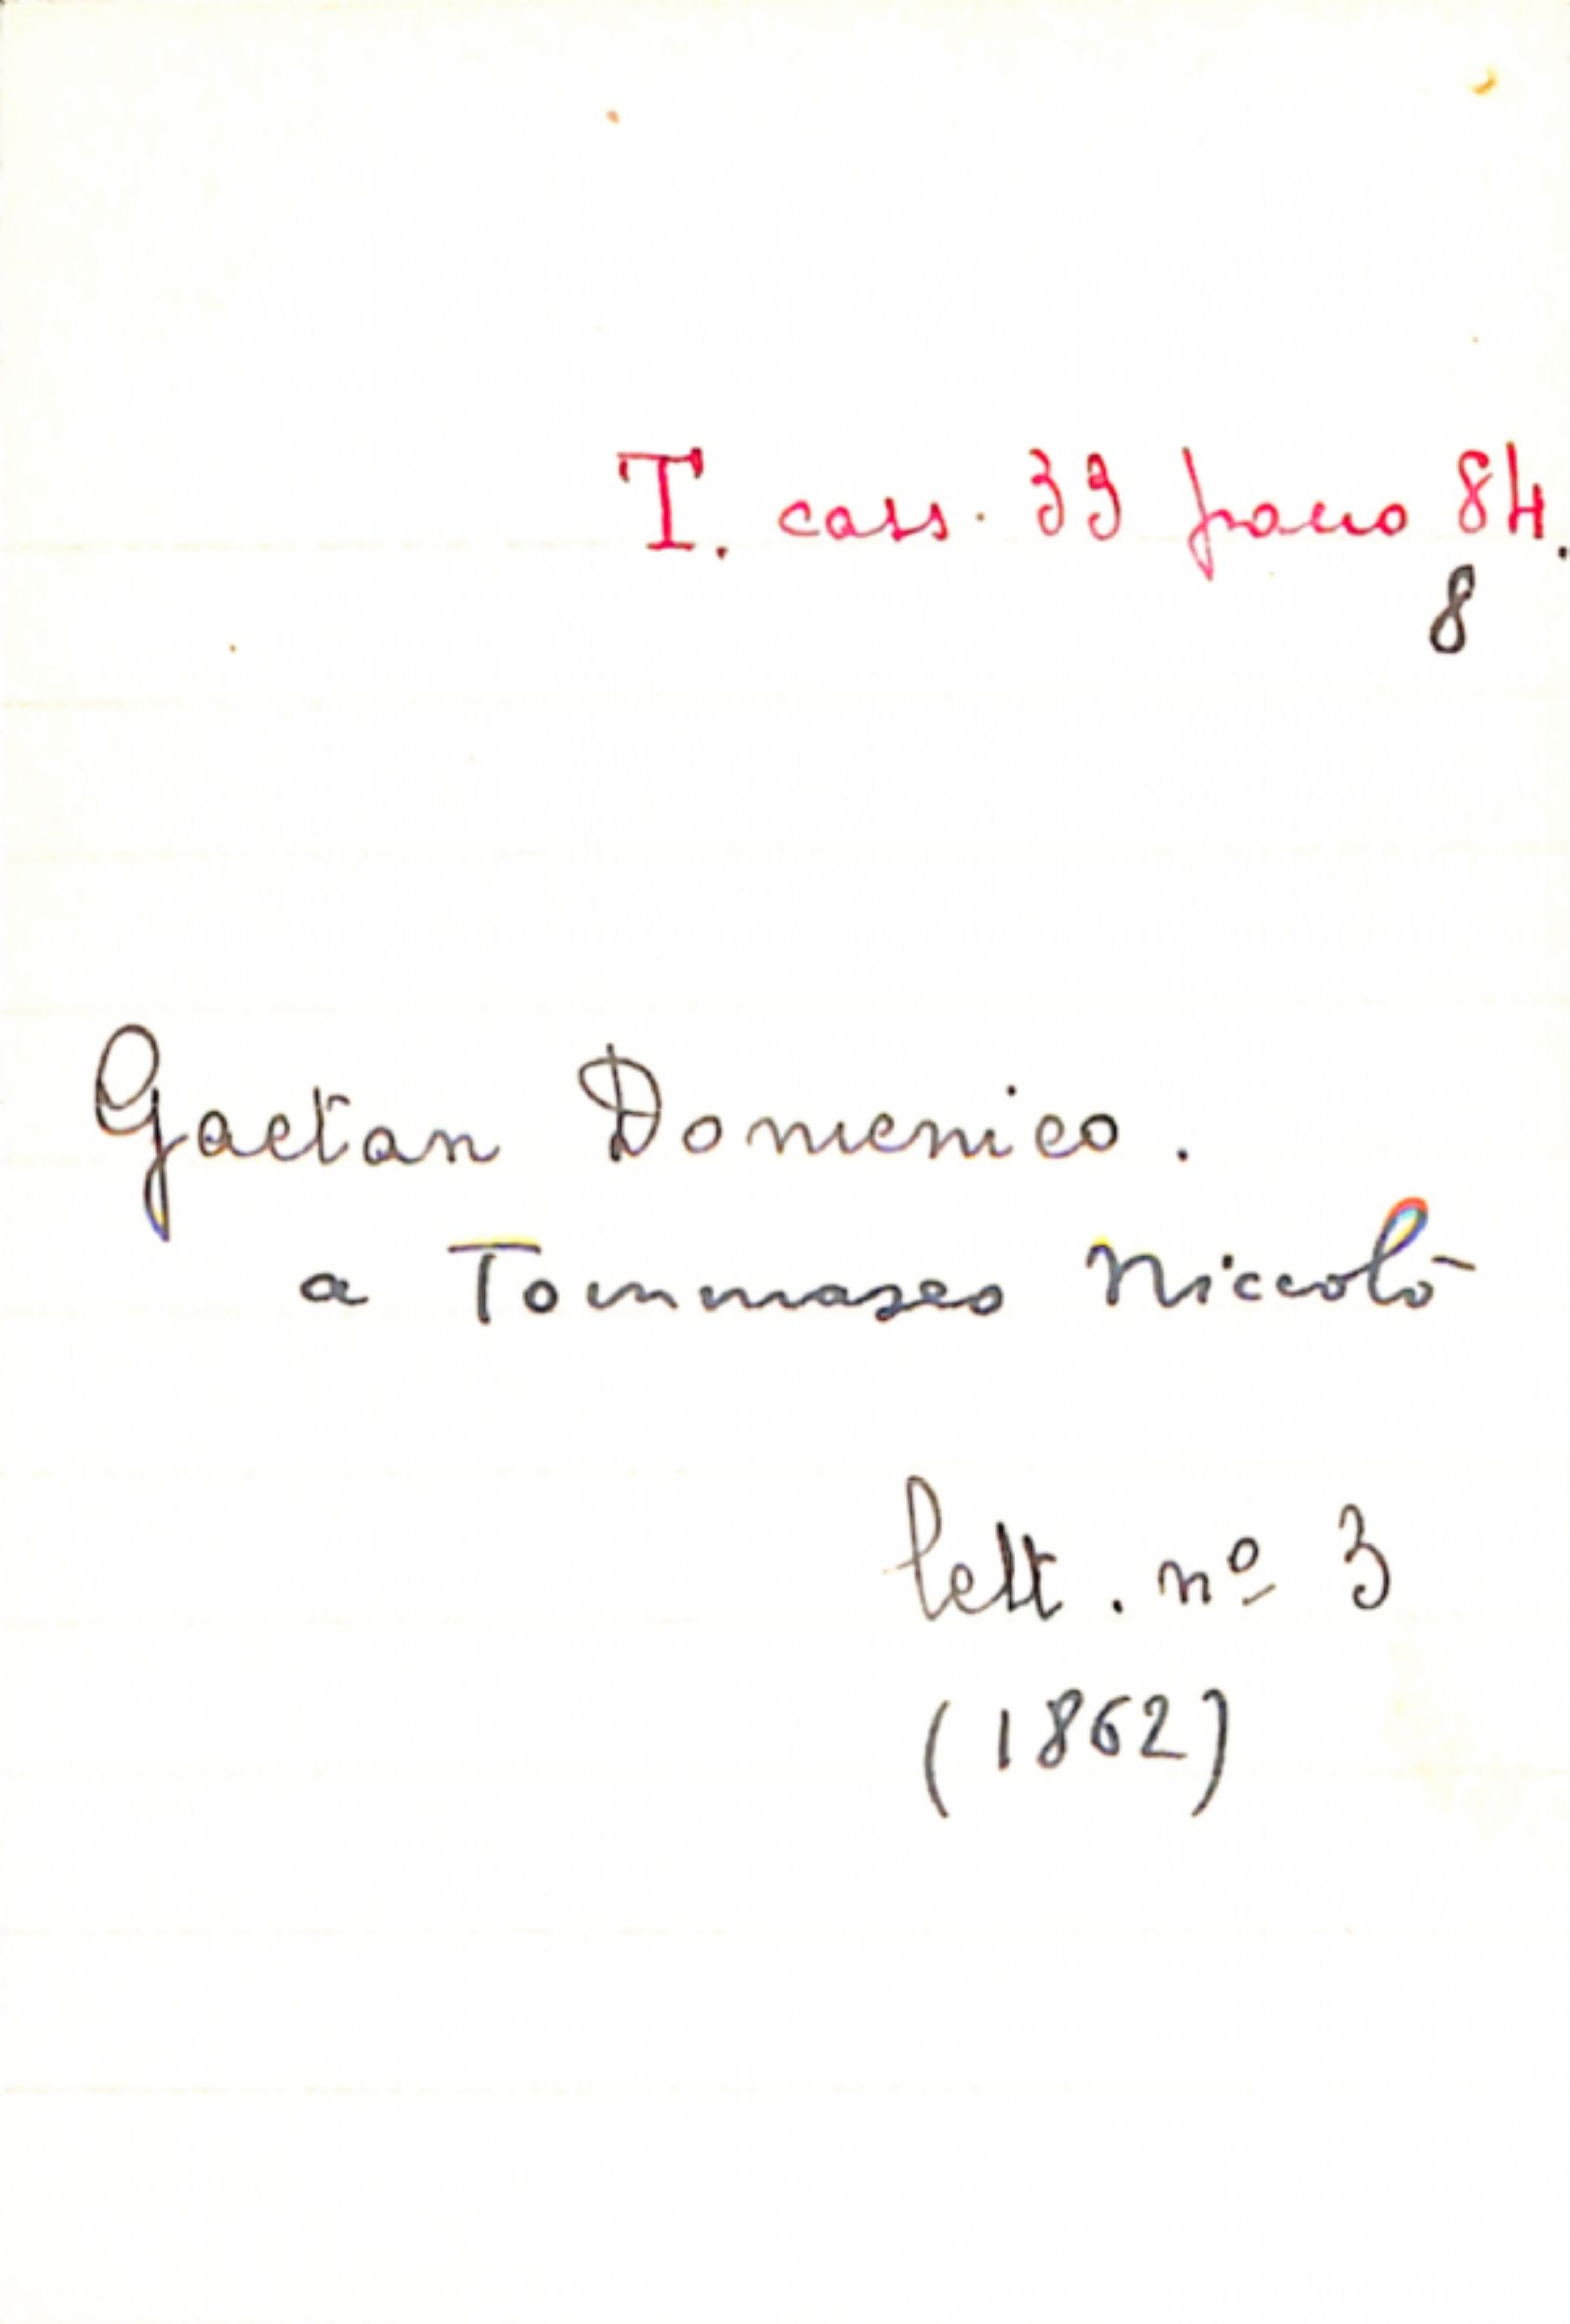 T. cass. 33 pacco 84.
8
Gaetan Domenico.
a Tommaseo Niccolò
lett. nº 3
(1862)